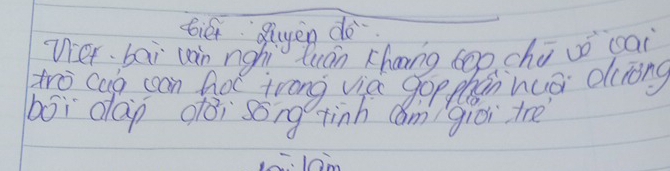 tiết . quyên đề.
Viet. bài văn nghị luận khoảng 600 chữ về vai
trò của văn học trong việc góp phần nuôi dưỡng
bồi đắp đời sống tinh cảm giới trẻ
bài làm